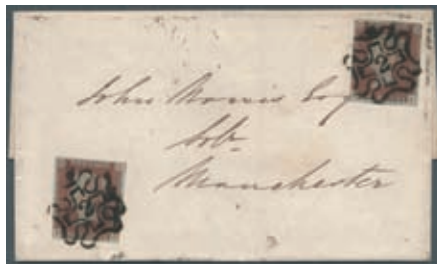 John Morris Esq
Solr
Manchester